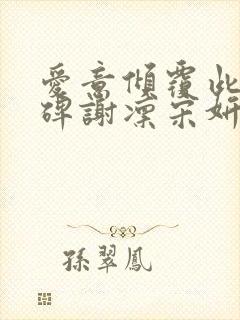 愛意傾覆此
碑謝凜宋妍
孫翠鳳